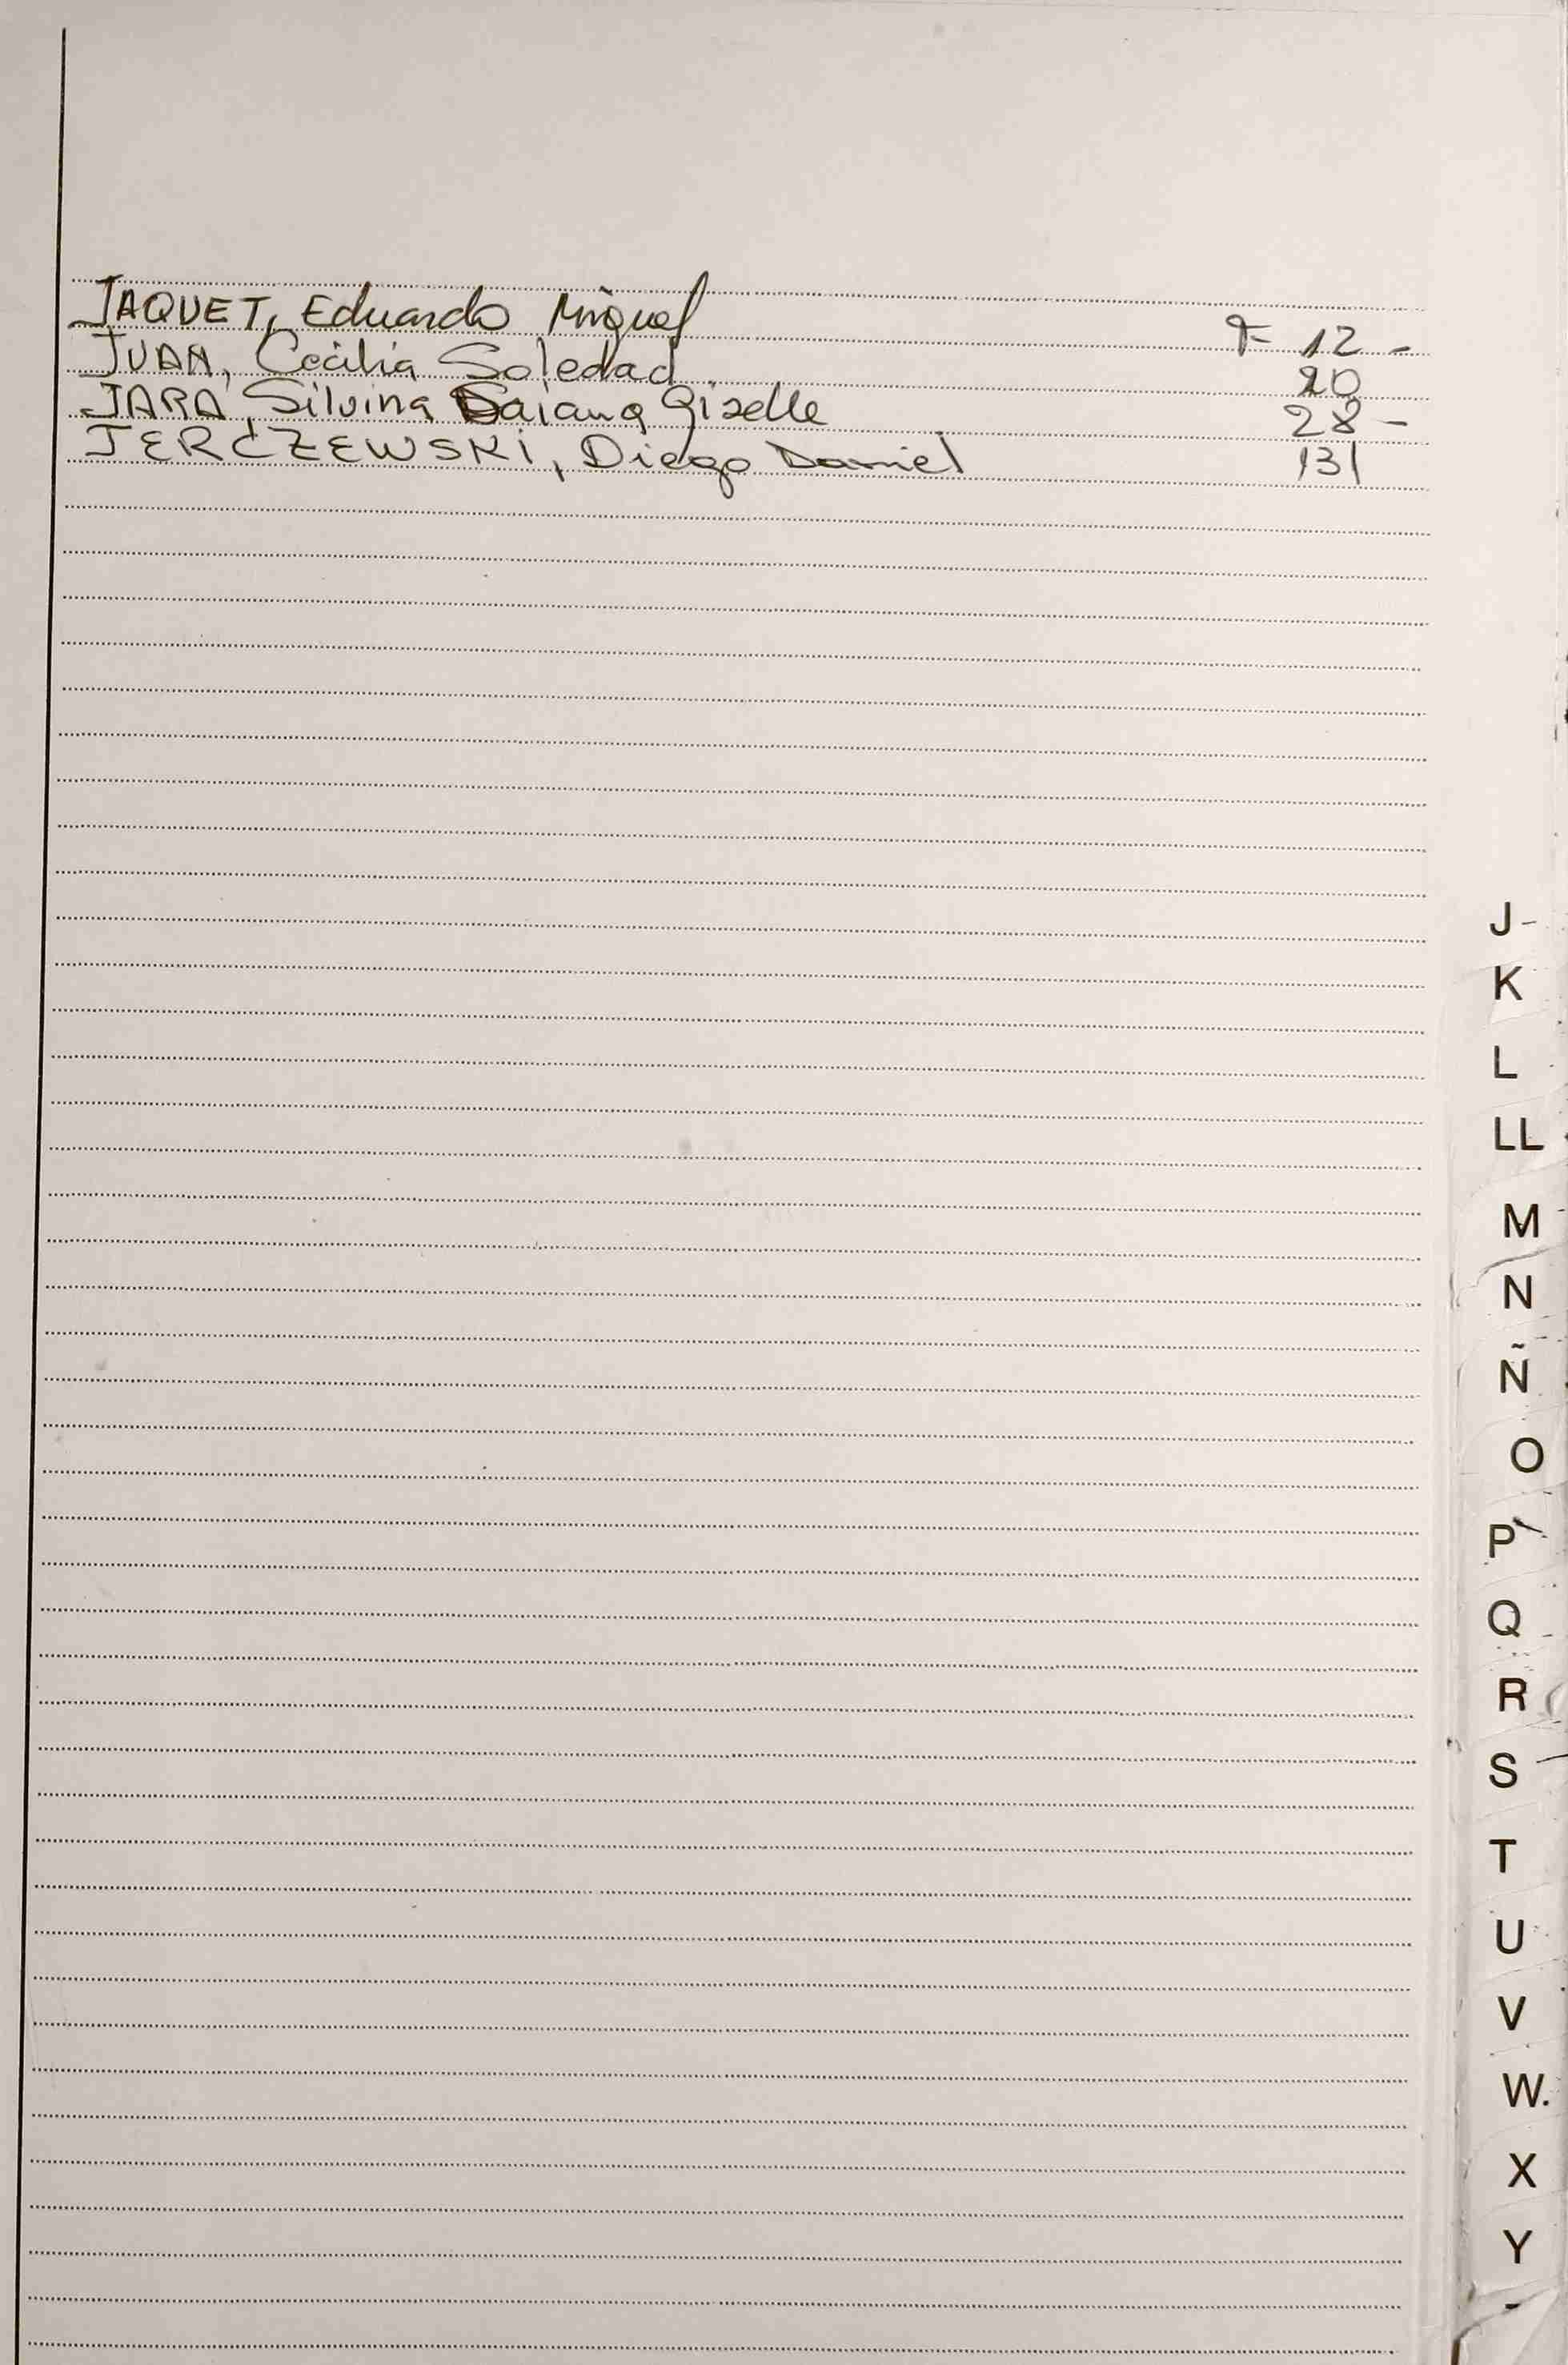 JAQUET, Eduardo Miguel F- 12 -
JUAN, Cecilia Soledad 20
JARA, Silvina Daiana Giselle 28 -
JERCZEWSKI, Diego Daniel 131
J
K
L
LL
M
N
Ñ
O
P
Q
R
S
T
U
V
W.
X
Y